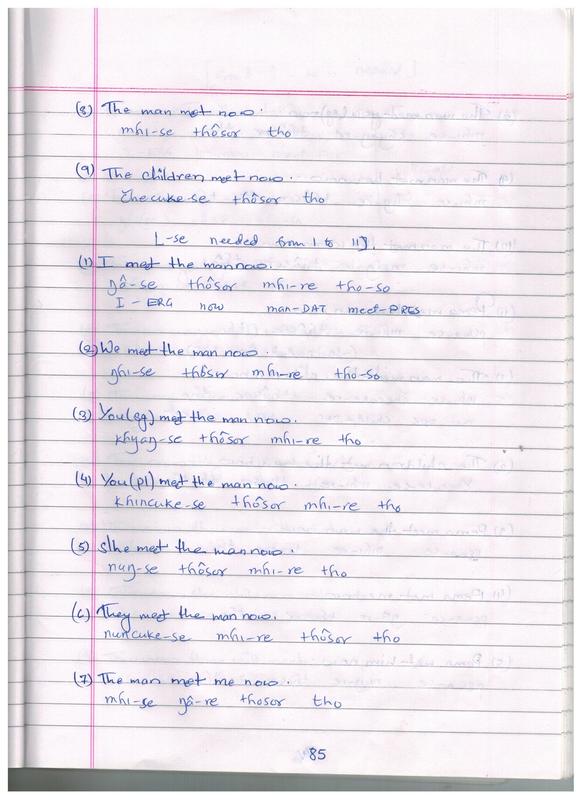 (8) The man met now.
mhi-se thôsor tho
(9) The children met now.
čhecuke-se thôsor tho
[-se needed from 1 to 11].
(1) I met the man now.
ŋâ-se thôsor mhi-re tho-so
I - ERG now man-DAT meet-PRES
(2) We met the man now.
ŋhi-se thôsor mhi-re tho-so
(3) You(sg) met the man now.
khyaŋ-se thôsor mhi-re tho
(4) You(pl) met the man now.
khincuke-se thôsor mhi-re tho
(5) s/he met the man now.
nuŋ-se thôsor mhi-re tho
(6) They met the man now.
nuncuke-se mhi-re thôsor tho
(7) The man met me now.
mhi-se ŋâ-re thosor tho
85